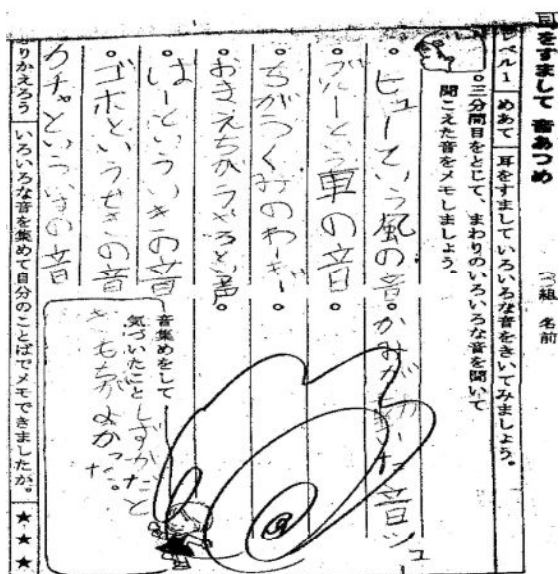 耳をすまして 音あつめ
組 名前
レベル1 めあて 耳をすましていろいろな音をきいてみましょう。
○三分間目をとじて、まわりのいろいろな音を聞いて
聞こえた音をメモしましょう。
ヒューていう風の音
かみが動いた音ツュー
ブーという車の音
ちがうくみのわーぎー
おまえちがうぞという声
はーといういきの音
ゴホというせきの音
クチャといういすの音
音集めをして
気づいたこと
しずかだと
きもちがよかった。
ふりかえろう いろいろな音を集めて自分のことばでメモできましたか。 ★★★